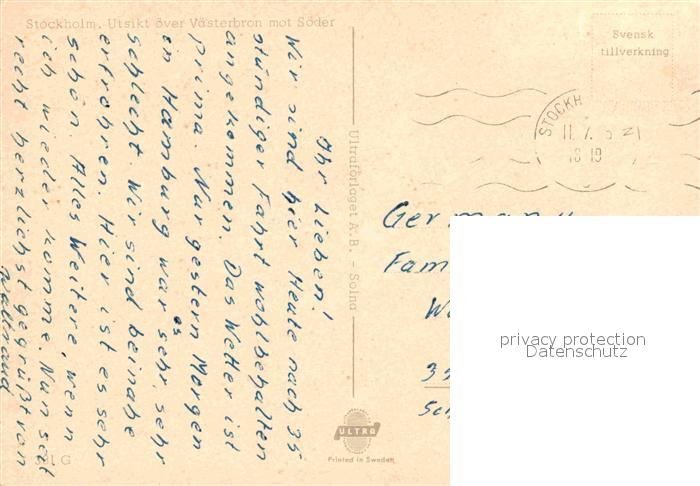 Stockholm. Utsikt över Västerbron mot Söder
Ihr Lieben!
Wir sind hier Heute nach 35
stündiger Fahrt wohlbehalten
angekommen. Das Wetter ist
prima. Nur gestern Morgen
in Hamburg war es sehr, sehr
schlecht. Wir sind beinahe
erfrohren. Hier ist es sehr
schön. Alles Weitere, wenn
ich wieder komme. Nun seit
recht herzlichst gegrüßt von
Waltraud
391 G
Ultraförlaget A. B. - Solna
ULTRA
Printed in Sweden
Svensk
tillverkning
STOCKH
11.7.5
18 19
Germany
Fam
privacy protection
Datenschutz